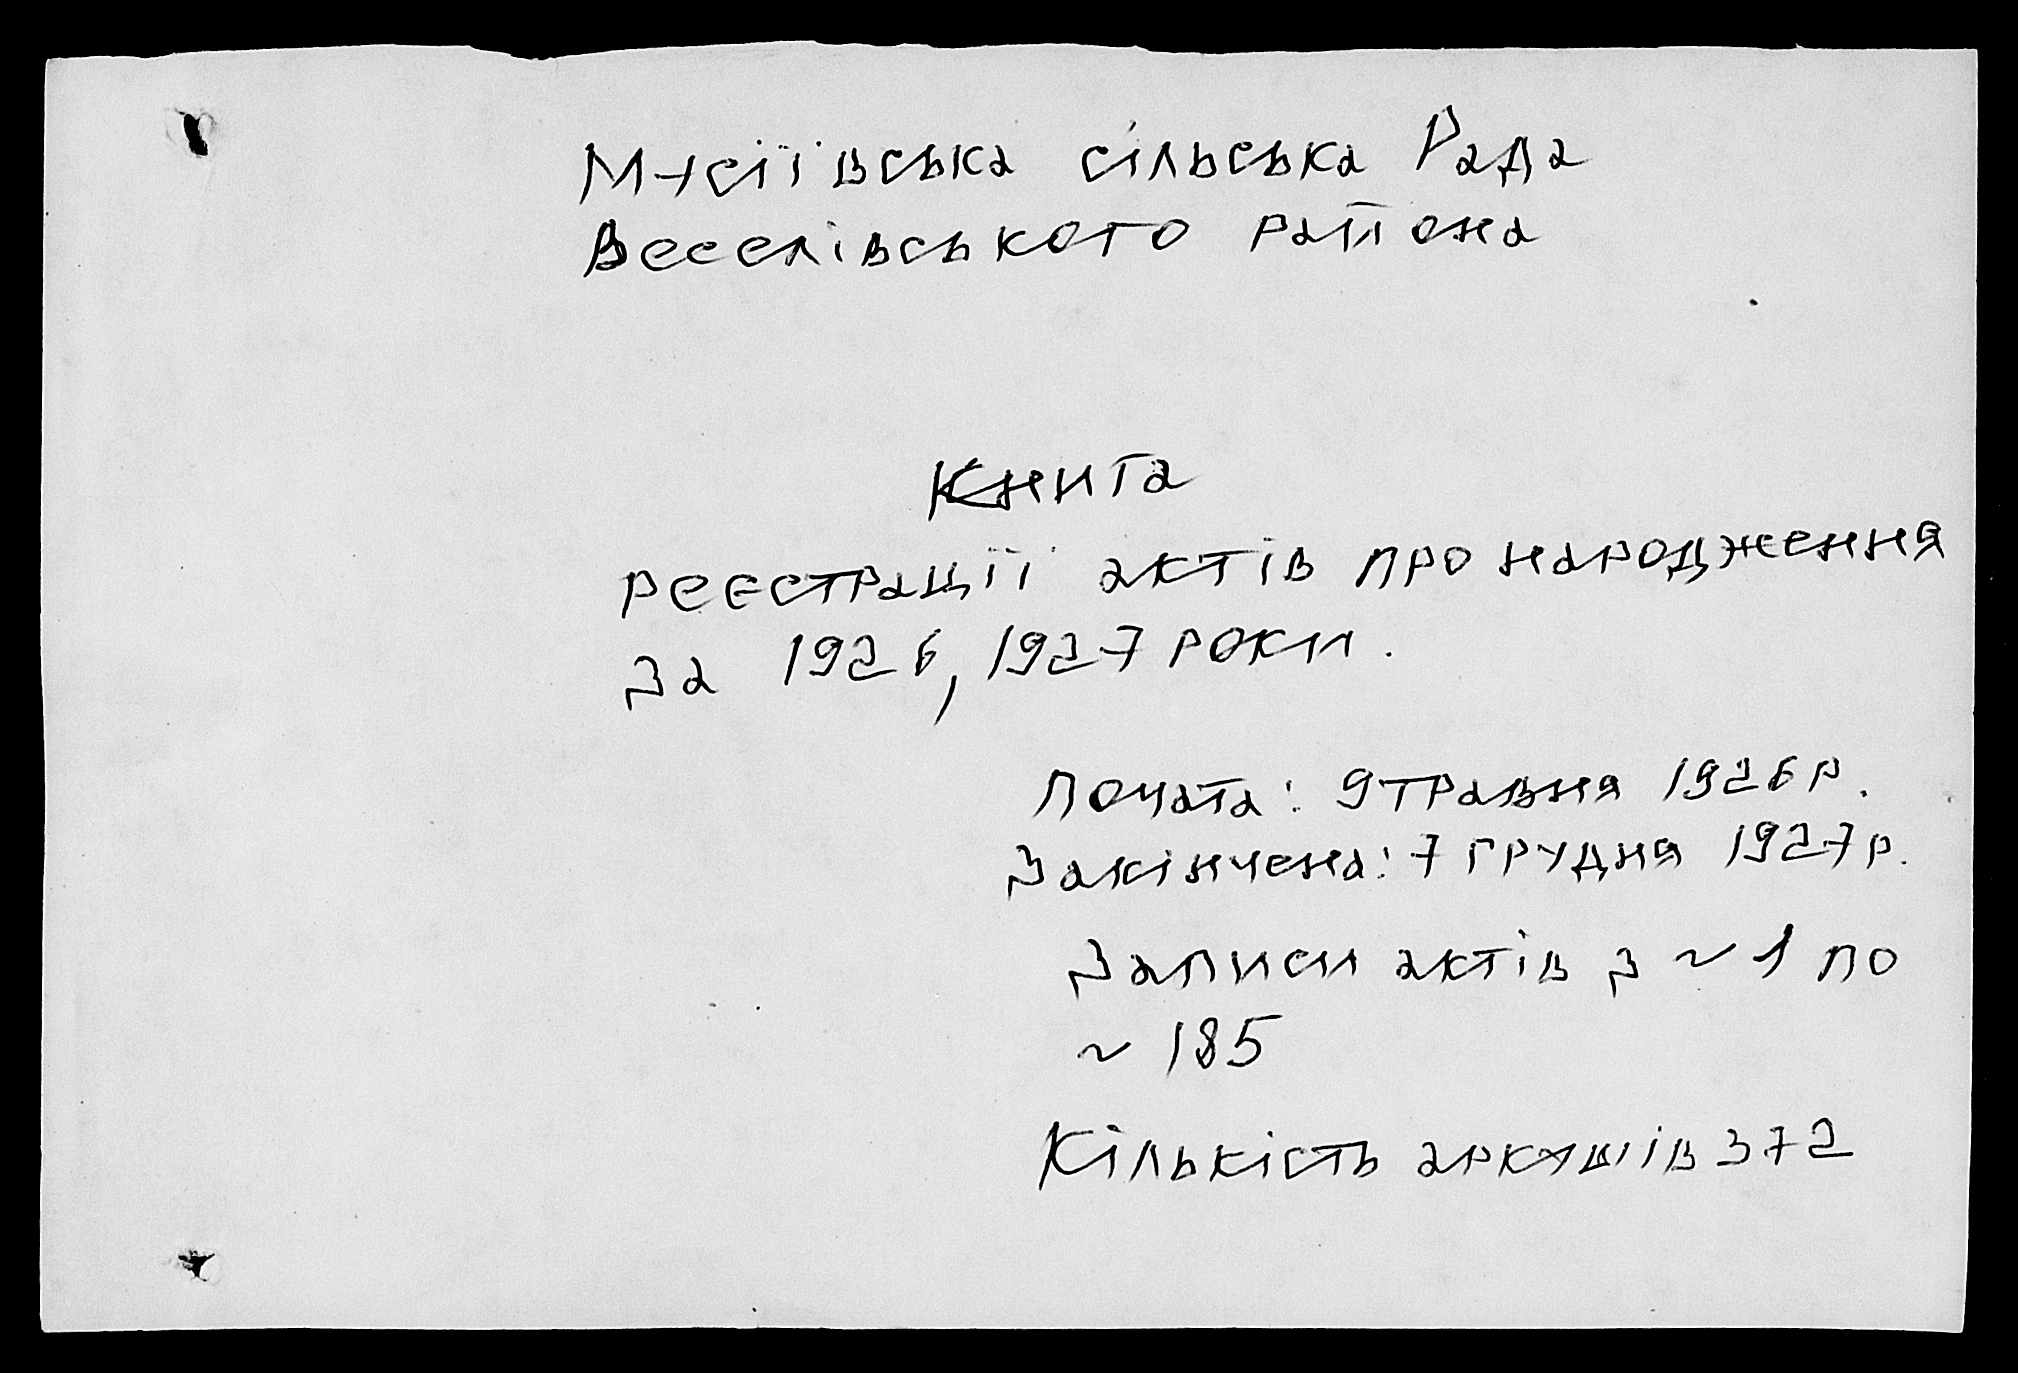 Мусіївська сільська Рада
Веселівського района
Книга
реєстрації актів про народження
за 1926, 1927 роки.
Почата: 9 травня 1926 р.
Закінчена: 7 грудня 1927 р.
Записи актів з ~ 1 по
~ 185
Кількість аркушів 372